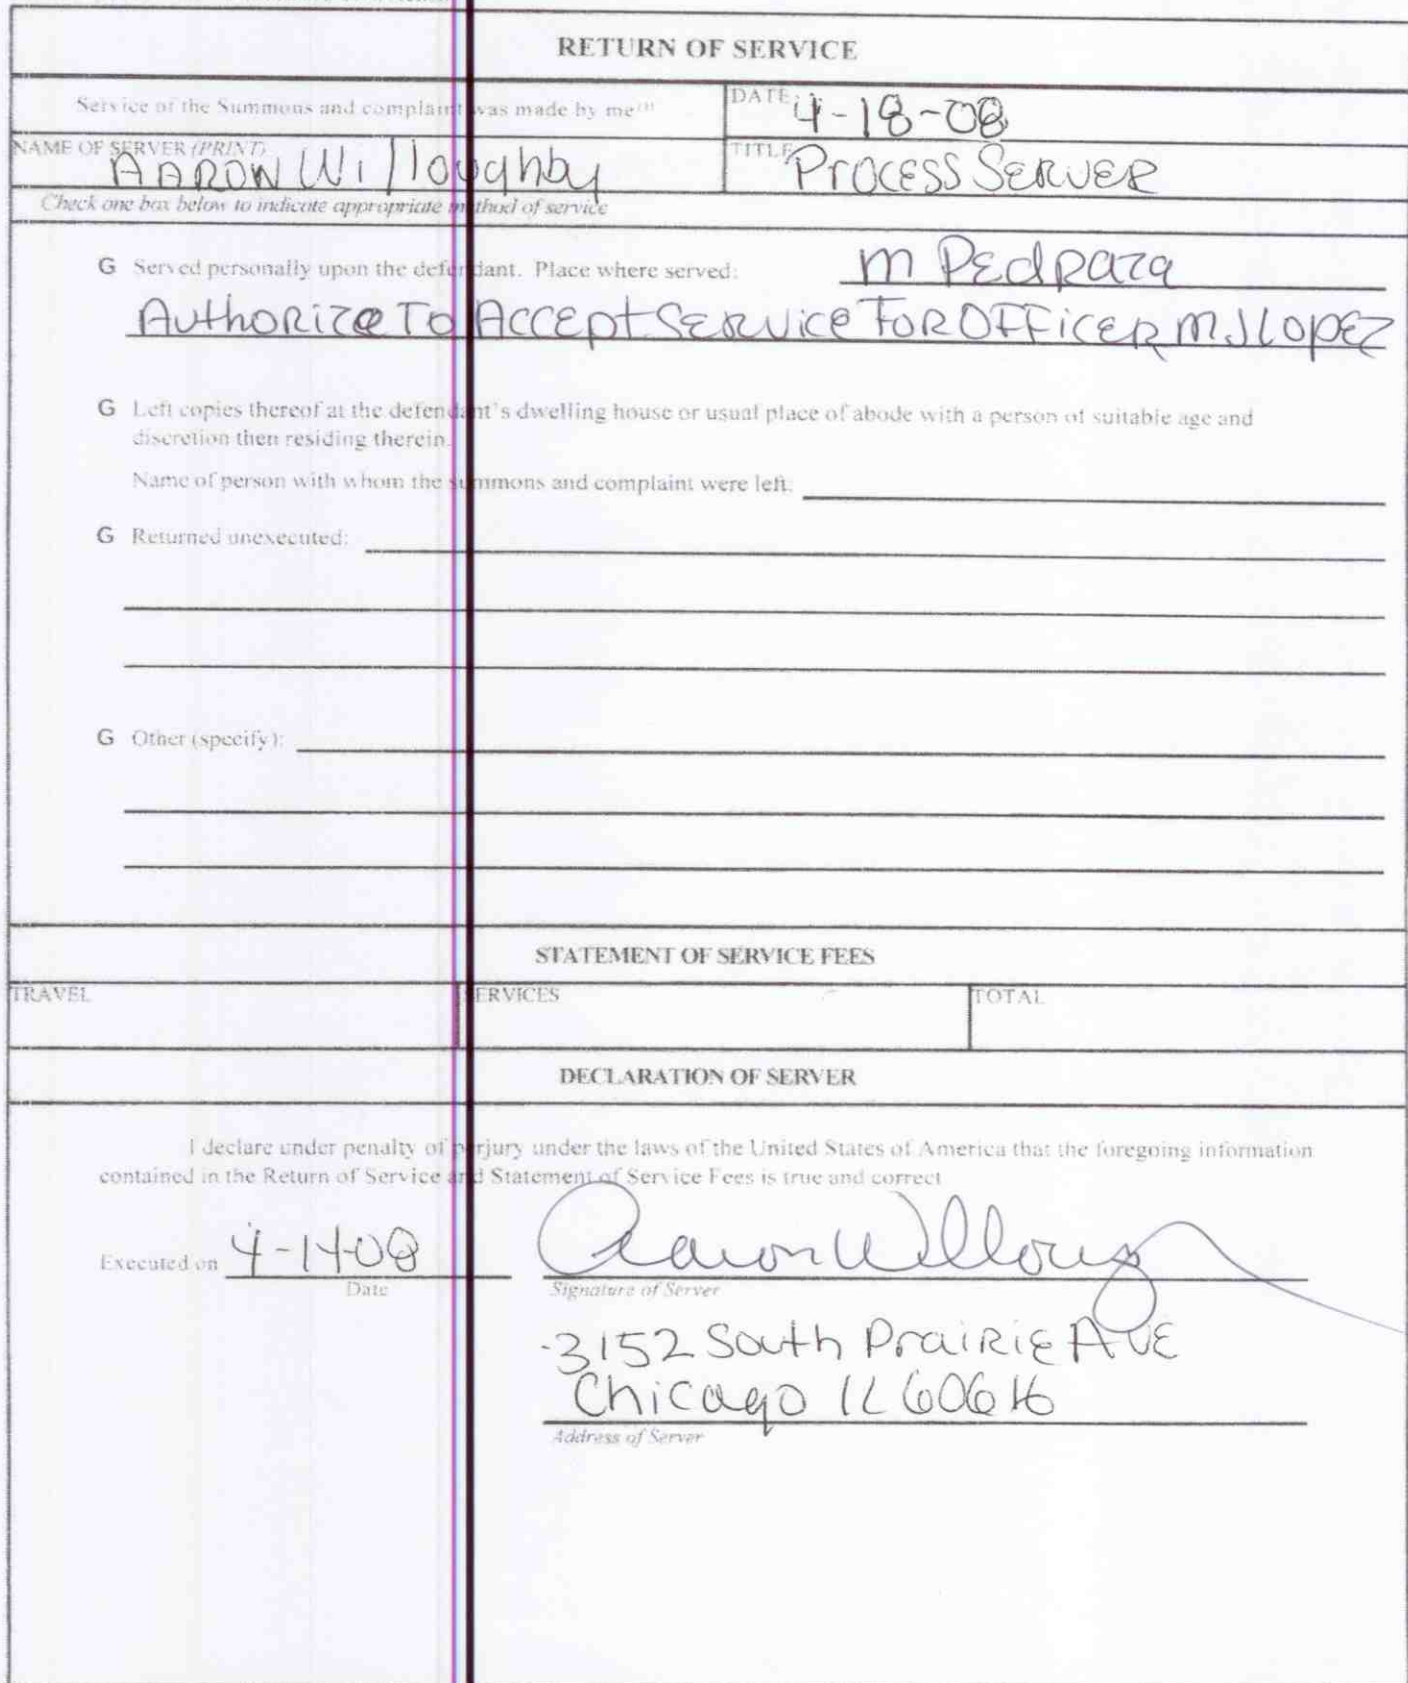 RETURN OF SERVICE
Service of the Summons and complaint was made by me(1)
DATE 4-18-08
NAME OF SERVER (PRINT) AARON Willoughby
TITLE PROCESS SERVER
Check one box below to indicate appropriate method of service
G Served personally upon the defendant. Place where served: M PEdRaza
AuthoRize To AccEpt SERVice FOR OFFiCER M J LOPEZ
G Left copies thereof at the defendant's dwelling house or usual place of abode with a person of suitable age and
discretion then residing therein.
Name of person with whom the summons and complaint were left:
G Returned unexecuted:
G Other (specify):
STATEMENT OF SERVICE FEES
TRAVEL SERVICES TOTAL
DECLARATION OF SERVER
I declare under penalty of perjury under the laws of the United States of America that the foregoing information
contained in the Return of Service and Statement of Service Fees is true and correct
Executed on 4-1 08
Date
Aaron Willoug
Signature of Server
3152 South PraiRiE AVE
Chicago IL 60616
Address of Server